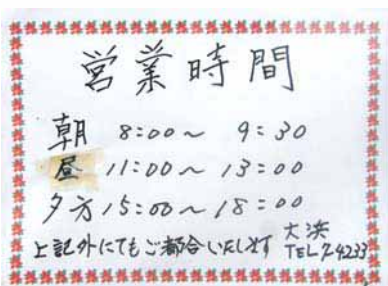 営業時間
朝 8:00～ 9:30
昼 11:00～ 13:00
夕方 15:00～ 18:00
上記外にてもご都合いたします
大浜
TEL 2-4233